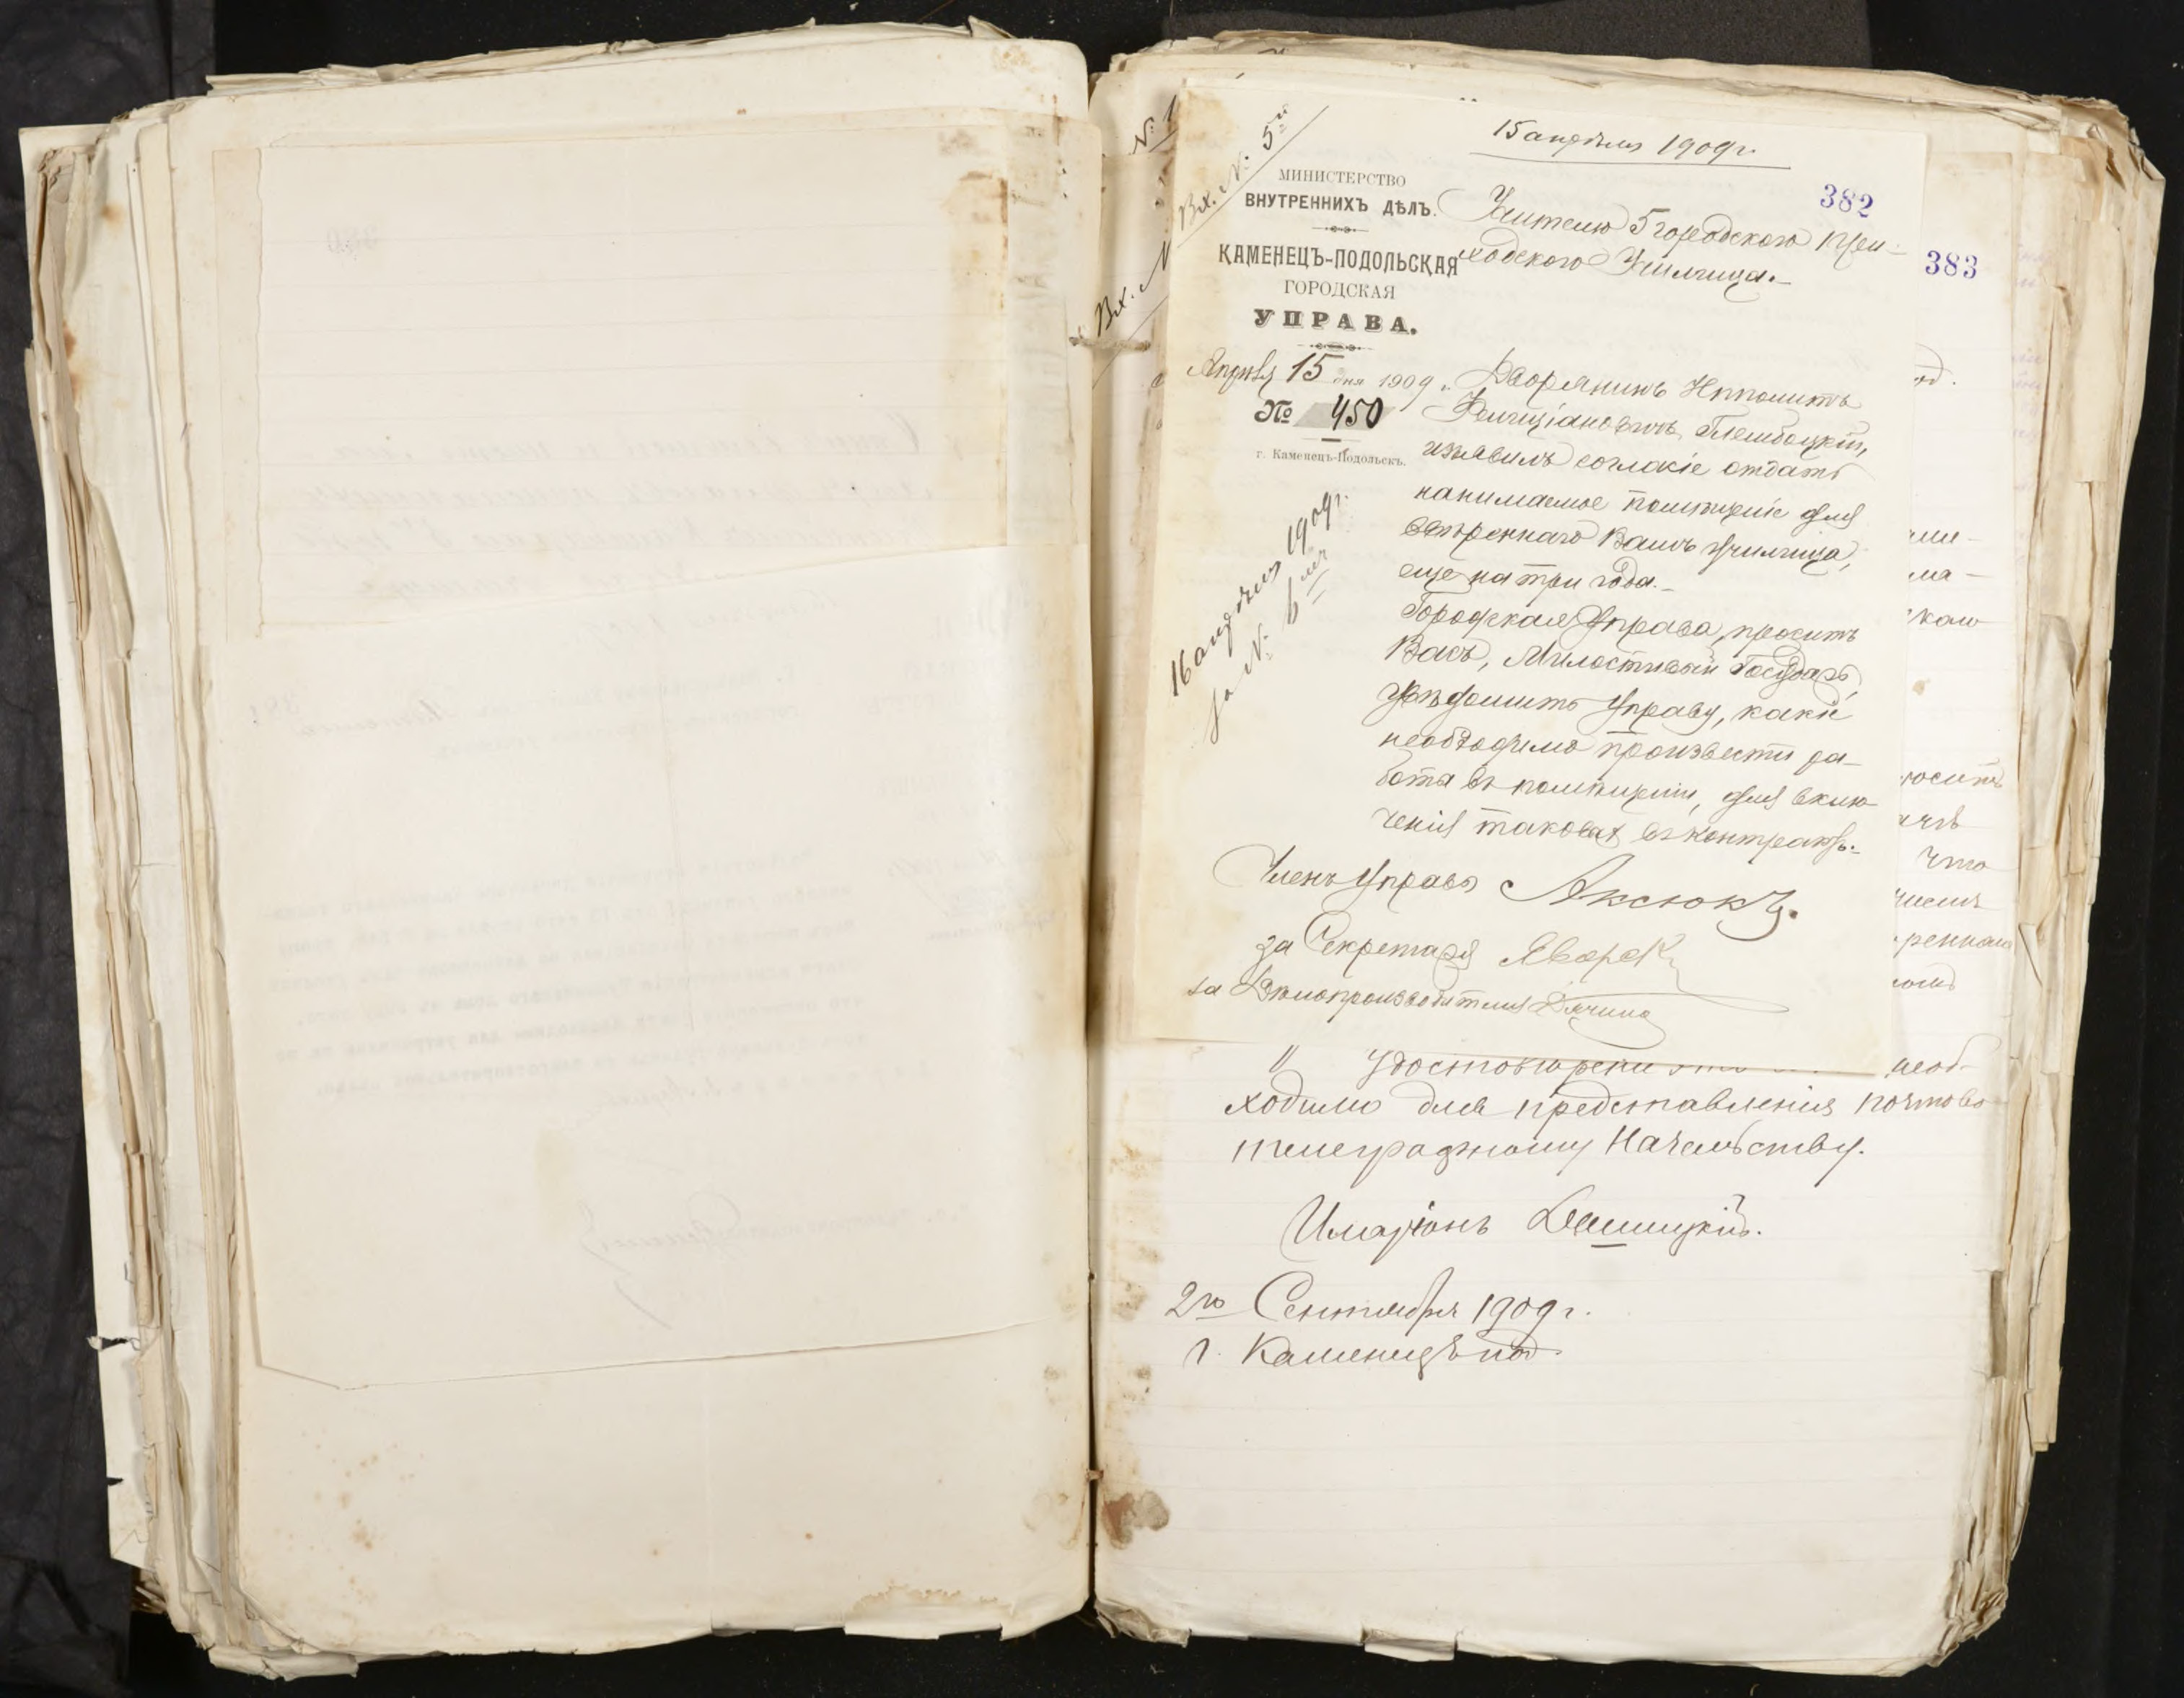 Вх. №. 5й
15 апрѣля 1909 г.
382
МИНИСТЕРСТВО
ВНУТРЕННИХЪ ДѢЛЪ.
КАМЕНЕЦЪ-ПОДОЛЬСКАЯ
ГОРОДСКАЯ
УПРАВА.
Апрѣля 15 дня 1909 г.
№ 450
г. Каменецъ-Подольскъ.
16 апрѣля 1909 г.
за №. 6
Учителю 5 городского при-
ходского Училища.
Дворянинъ Ипполитъ
Фелиціановичъ Глембоцкій,
изъявилъ согласіе отдать
нанимаемое помѣщеніе для
ввѣреннаго Вамъ училища,
еще на три года.
Городская Управа, проситъ
Васъ, Милостивый Государь,
увѣдомить Управу, какія
необходимо произвести ра-
боты въ помѣщеніи, для вклю-
ченія таковыхъ въ контрактъ.
Членъ Управы Аксюкъ.
за Секретаря Яворск
за Дѣлопроизводителя
383
Вх. №
каго
что
необ-
ходимо для представленія почтово
телеграфному Начальству.
Иларіонъ
2го Сентября 1909 г.
г. Каменецъ под.